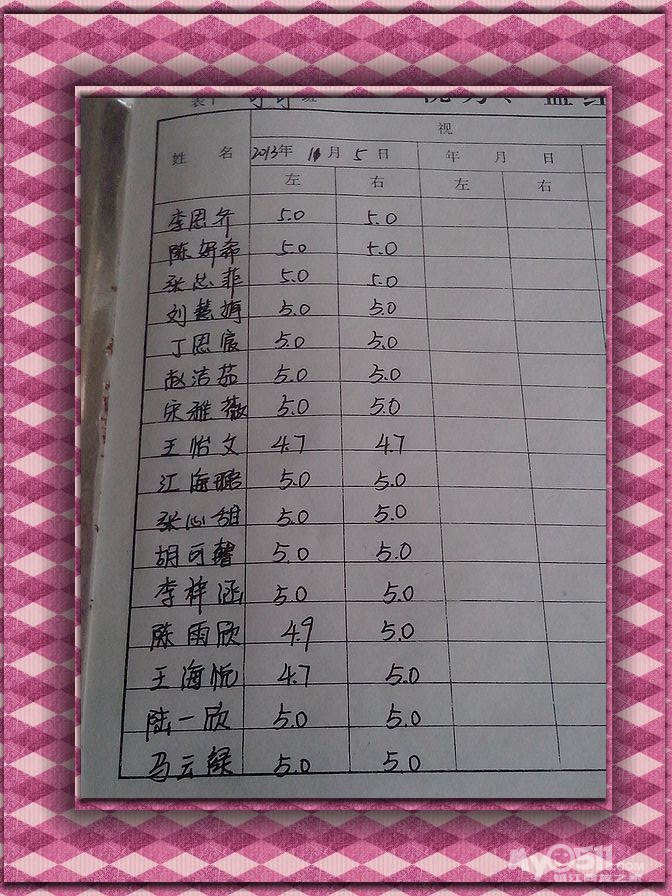 视
姓 名 2013年 11月 5日 年 月 日
左 右 左 右
李恩乔 5.0 5.0
陈妍希 5.0 5.0
张芯菲 5.0 5.0
刘慧 5.0 5.0
丁恩宸 5.0 5.0
赵洁茹 5.0 5.0
宋雅薇 5.0 5.0
王怡文 4.7 4.7
江海璐 5.0 5.0
张心甜 5.0 5.0
胡可馨 5.0 5.0
李梓涵 5.0 5.0
陈雨欣 4.9 5.0
王海悦 4.7 5.0
陆一欣 5.0 5.0
马云绿 5.0 5.0
My0511.COM